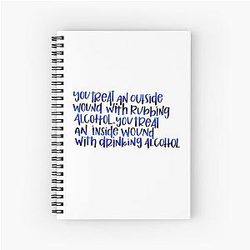 YOU TREAT AN OUTSIDE
WOUND WITH RUBBING
ALCOHOL. YOU TREAT
AN INSIDE WOUND
WITH dRINKING ALCOHOL